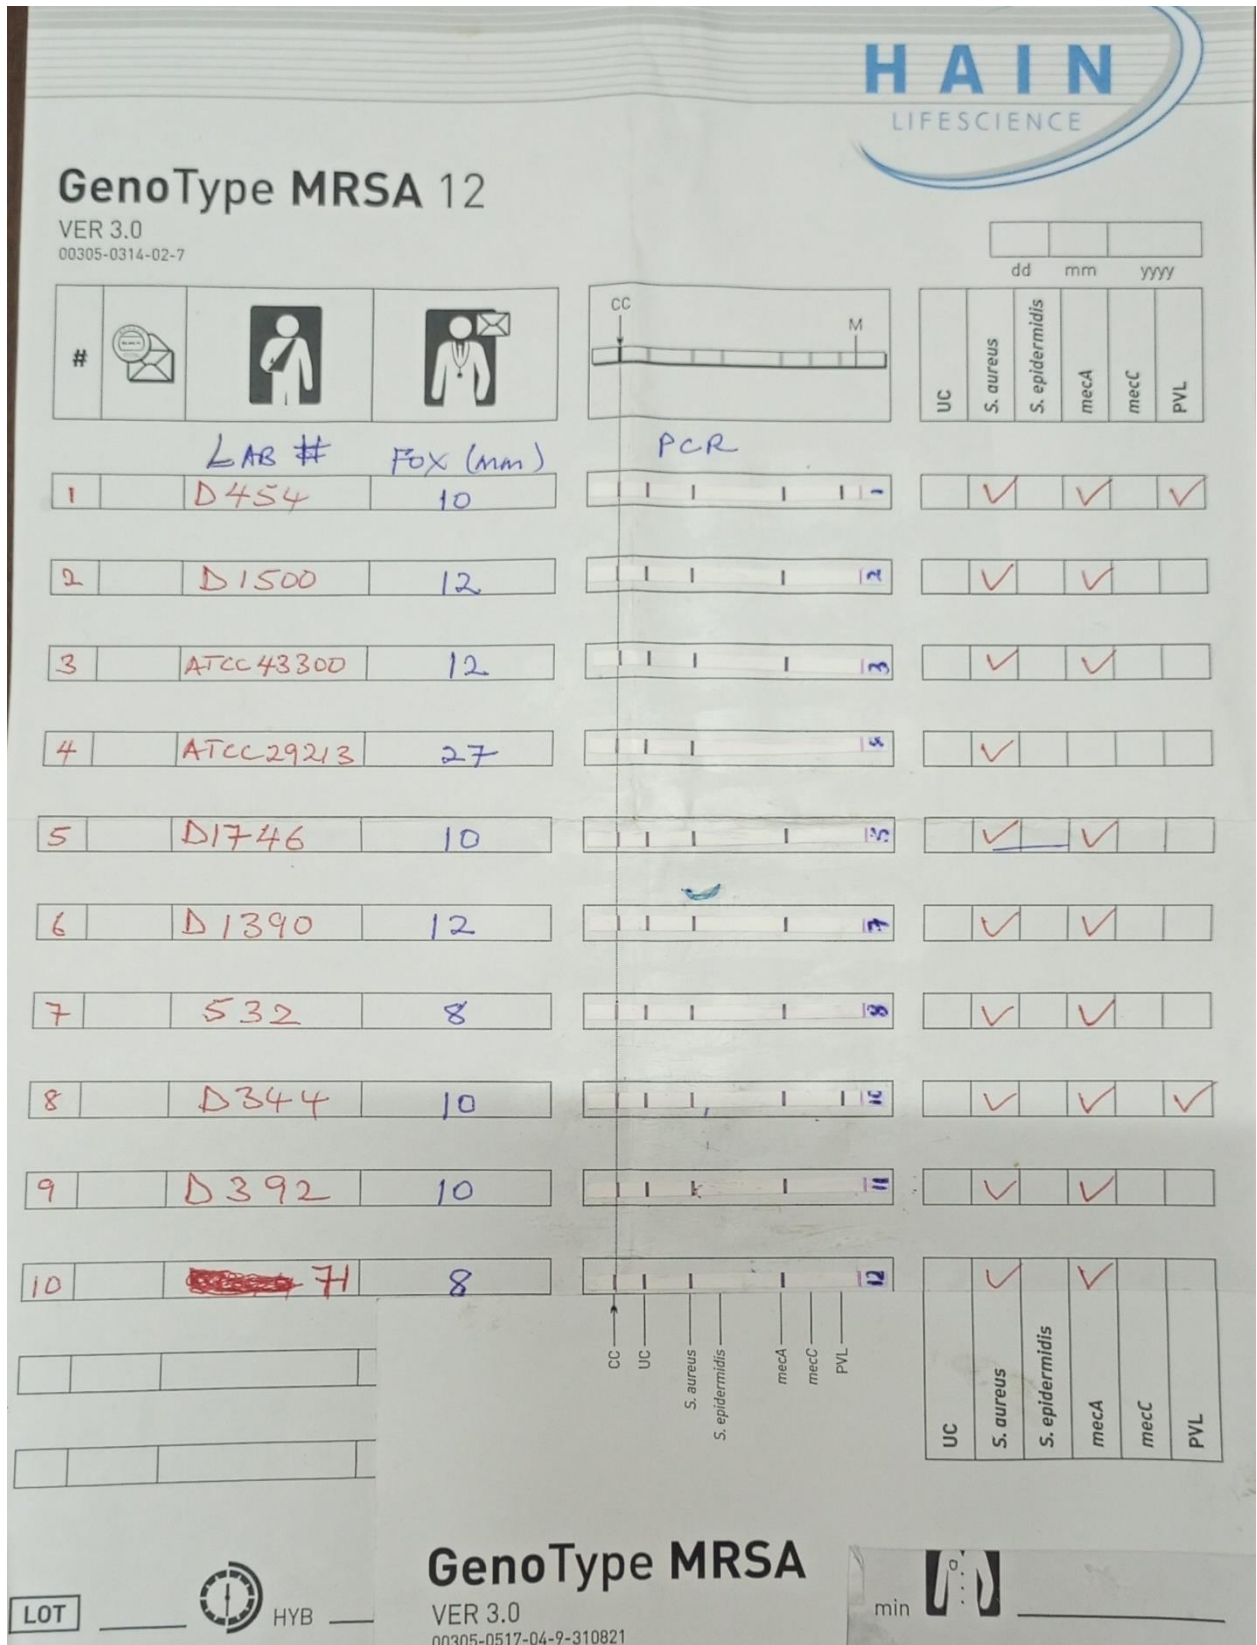 HAIN
LIFESCIENCE
GenoType MRSA 12
VER 3.0
00305-0314-02-7
dd mm yyyy
# CC M UC S. aureus S. epidermidis mecA mecC PVL
LAB # FOX (mm) PCR
1 D454 10 1 ✓ ✓ ✓
2 D1500 12 2 ✓ ✓
3 ATCC43300 12 3 ✓ ✓
4 ATCC29213 27 4 ✓
5 D1746 10 5 ✓ ✓
6 D1390 12 7 ✓ ✓
7 532 8 8 ✓ ✓
8 D344 10 10 ✓ ✓ ✓
9 D392 10 11 ✓ ✓
10 71 8 12 ✓ ✓
CC UC S. aureus S. epidermidis mecA mecC PVL
UC S. aureus S. epidermidis mecA mecC PVL
GenoType MRSA
LOT HYB VER 3.0 min
00305-0517-04-9-310821